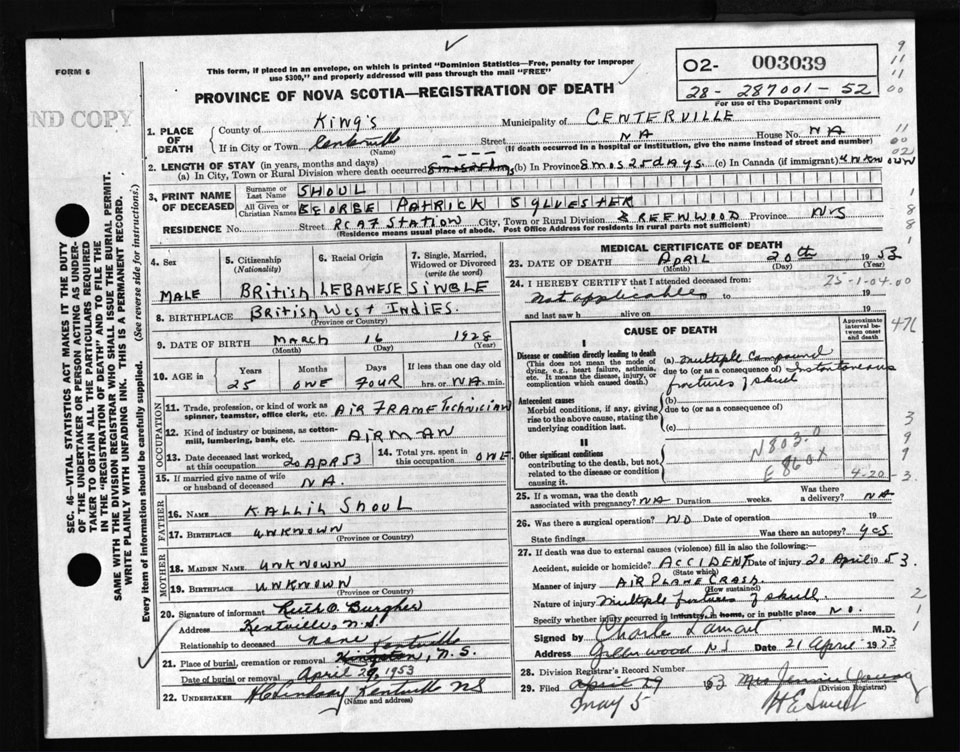 FORM 6
This form, if placed in an envelope, on which is printed "Dominion Statistics—Free, penalty for improper
use $300," and properly addressed will pass through the mail "FREE"
02- 003039
28- 287001-52
For use of the Department only
PROVINCE OF NOVA SCOTIA—REGISTRATION OF DEATH
ND COPY
SEC. 46—VITAL STATISTICS ACT MAKES IT THE DUTY
OF THE UNDERTAKER OR PERSON ACTING AS UNDER-
TAKER TO OBTAIN ALL THE PARTICULARS REQUIRED
IN THE "REGISTRATION OF DEATH" AND TO FILE THE
SAME WITH THE DIVISION REGISTRAR WHO SHALL ISSUE THE BURIAL PERMIT.
WRITE PLAINLY WITH UNFADING INK. THIS IS A PERMANENT RECORD.
Every item of information should be carefully supplied. (See reverse side for instructions.)
1. PLACE OF DEATH
County of King's Municipality of CENTERVILLE
If in City or Town Centreville Street NA House No. NA
(Name) (If death occurred in a hospital or institution, give the name instead of street and number)
2. LENGTH OF STAY (in years, months and days)
(a) In City, Town or Rural Division where death occurred (b) In Province 8 mos 25 days (c) In Canada (if immigrant) unknown
3. PRINT NAME OF DECEASED
Surname or Last Name SHOUL
All Given or Christian Names GEORGE PATRICK SYLVESTER
RESIDENCE No. Street RCAF STATION City, Town or Rural Division GREENWOOD Province NS
(Residence means usual place of abode. Post Office Address for residents in rural parts not sufficient)
4. Sex MALE
5. Citizenship (Nationality) British
6. Racial Origin LEBANESE
7. Single, Married, Widowed or Divorced (write the word) SINGLE
8. BIRTHPLACE British West Indies.
(Province or Country)
9. DATE OF BIRTH March 16 1928
(Month) (Day) (Year)
10. AGE in Years Months Days If less than one day old
25 ONE FOUR hrs. or NA min.
OCCUPATION
11. Trade, profession, or kind of work as spinner, teamster, office clerk, etc. AIR FRAME Technician
12. Kind of industry or business, as cotton-mill, lumbering, bank, etc. AIRMAN
13. Date deceased last worked at this occupation 20 APR 53
14. Total yrs. spent in this occupation ONE
15. If married give name of wife or husband of deceased NA.
FATHER
16. NAME KALLIL SHOUL
17. BIRTHPLACE UNKNOWN
(Province or Country)
MOTHER
18. MAIDEN NAME UNKNOWN
19. BIRTHPLACE UNKNOWN
(Province or Country)
20. Signature of informant Ruth O. Burgher
Address Kentville, N.S.
Relationship to deceased none
21. Place of burial, cremation or removal Kingston, Kentville N.S.
Date of burial or removal April 29, 1953
22. UNDERTAKER H C Lindsay Kentville NS
(Name and address)
MEDICAL CERTIFICATE OF DEATH
23. DATE OF DEATH APRIL 20th 1953
(Month) (Day) (Year)
24. I HEREBY CERTIFY that I attended deceased from:
25-1-04.00
Not applicable to 19
and last saw h alive on 19
CAUSE OF DEATH
Approximate interval between onset and death
471
I
Disease or condition directly leading to death
(This does not mean the mode of dying, e.g., heart failure, asthenia, etc. It means the disease, injury, or complication which caused death.)
(a) Multiple Compound
due to (or as a consequence of) Instantaneous
fractures of skull
Antecedent causes
Morbid conditions, if any, giving rise to the above cause, stating the underlying condition last.
(b)
due to (or as a consequence of)
(c)
II
Other significant conditions
contributing to the death, but not related to the disease or condition causing it.
N803.0
E860X
4-20-3
25. If a woman, was the death associated with pregnancy? NA Duration weeks. Was there a delivery? NA
26. Was there a surgical operation? NO Date of operation 19
State findings Was there an autopsy? yes
27. If death was due to external causes (violence) fill in also the following:—
Accident, suicide or homicide? ACCIDENT Date of injury 20 April 1953.
(State which)
Manner of injury AIR PLANE CRASH.
(How sustained)
Nature of injury Multiple fractures of skull
Specify whether injury occurred in industry, in home, or in public place NO.
Signed by M.D.
Address Greenwood NS Date 21 April 1953
28. Division Registrar's Record Number
29. Filed April 29 53
(Division Registrar)
May 5